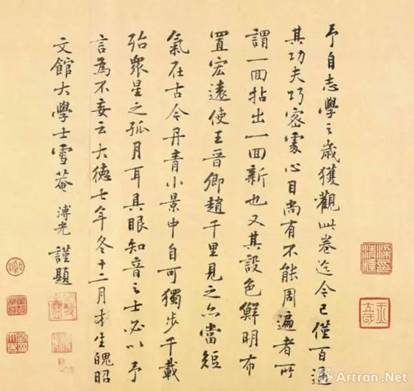 予自志學之歲獲觀此卷迄今已僅百過
其功夫巧密處心目尚有不能周遍者所
謂一回拈出一回新也又其設色鮮明布
置宏遠使王晉卿趙千里見之亦當短
氣在古今丹青小景中自可獨步千載
殆眾星之孤月耳具眼知音之士必以予
言為不妄云大德七年冬十二月才生魄昭
文館大學士雪菴溥光謹題
Artron.Net